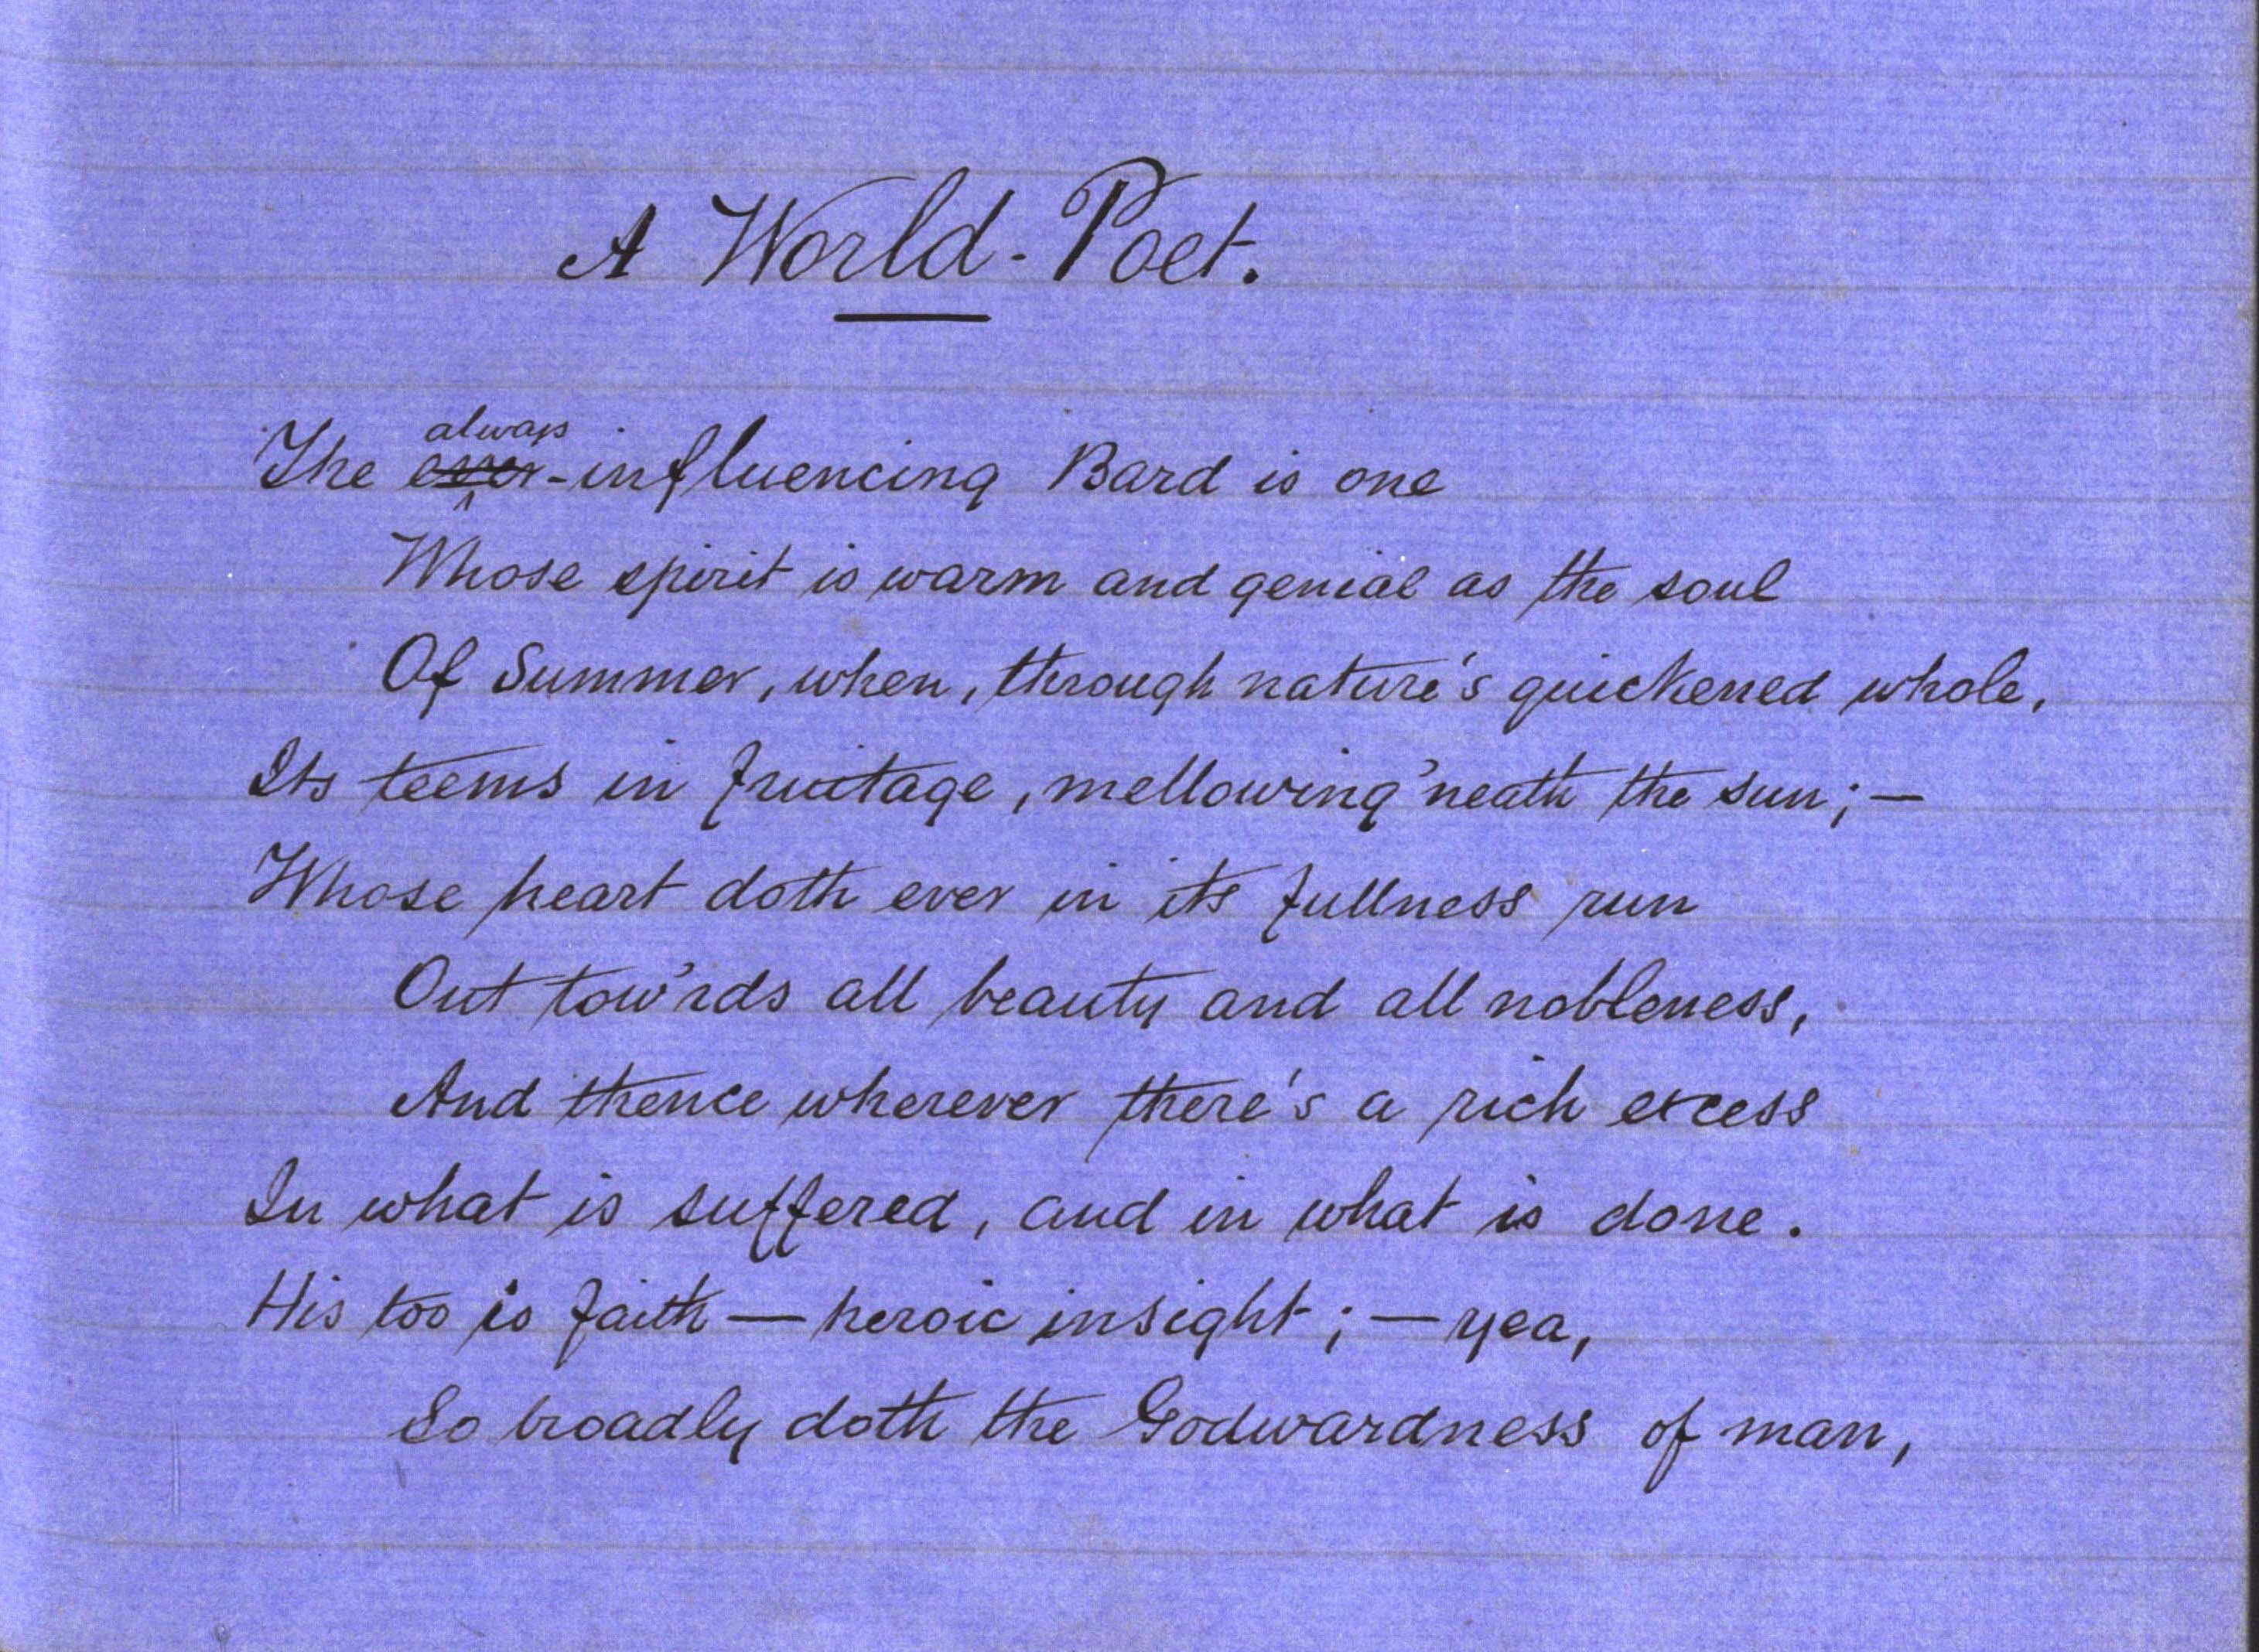 A World-Poet.
always
The ever-influencing Bard is one
Whose spirit is warm and genial as the soul
Of Summer, when, through nature's quickened whole,
Its teems in fruitage, mellowing 'neath the sun; —
Whose heart doth ever in its fullness run
Out tow'rds all beauty and all nobleness,
And thence wherever there's a rich excess
In what is suffered, and in what is done.
His too is faith — heroic insight; — yea,
So broadly doth the Godwardness of man,